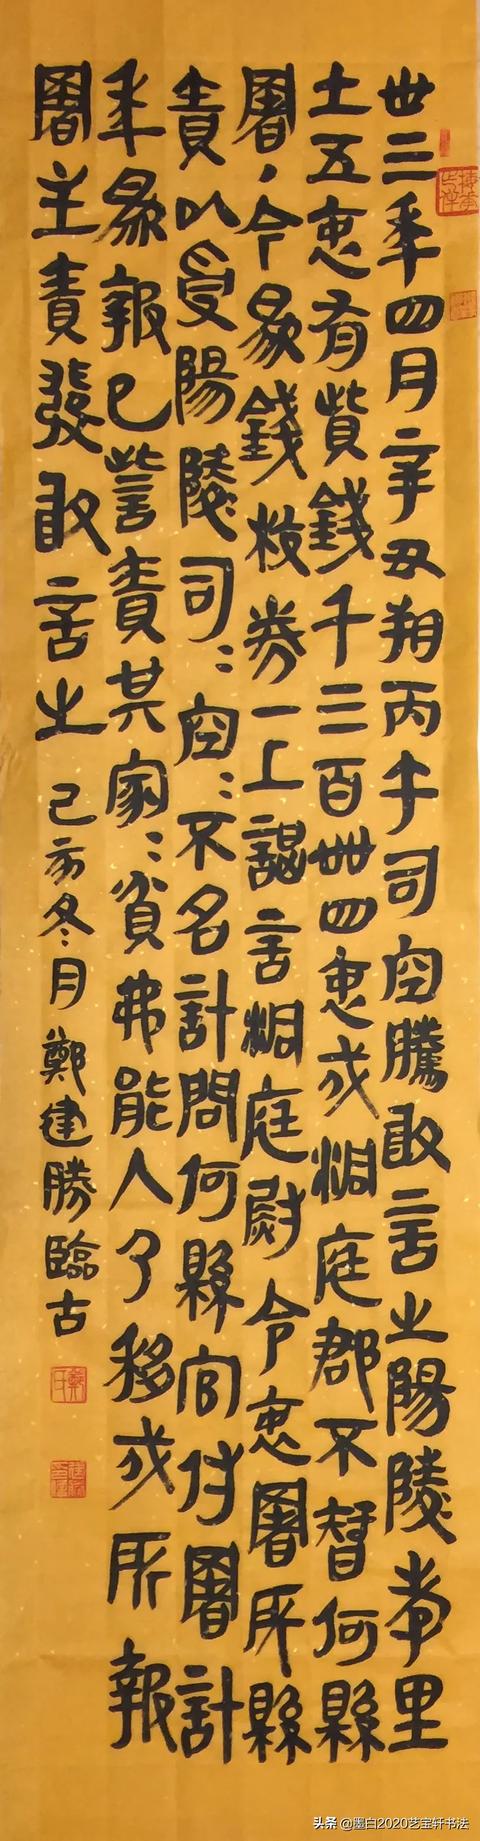 卅三年四月辛丑朔丙午司空騰敢言之陽陵孝里
士五衷有貲錢千三百卌四衷戍洞庭郡不智何縣
署·今為錢校券一上謁言洞庭尉令衷署所縣
責以受陽陵司=空=不名計問何縣官付署計
年為報已訾責其家=貧弗能入乃移戍所報
署主責發敢言之 己亥冬月鄭建勝臨古
头条 @墨白2020艺宝轩书法